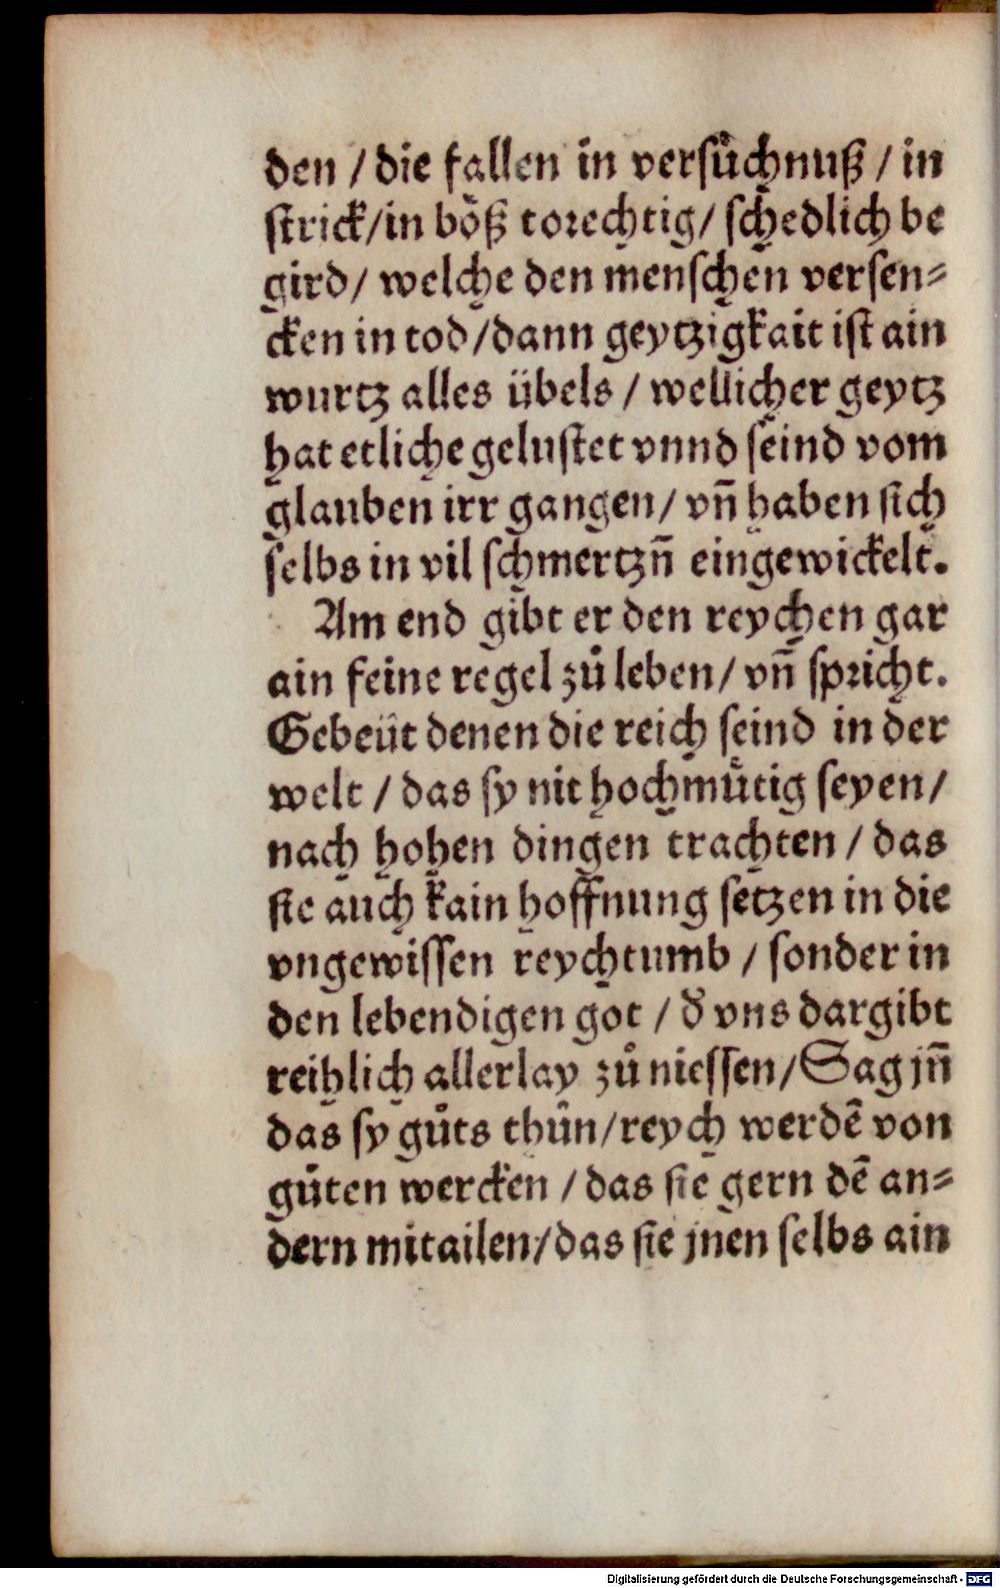 den / die fallen in versůchnuß / in
strick/in böß torechtig/ schedlich be
gird/ welche den menschen versen-
cken in tod/dann geytzigkait ist ain
wurtz alles übels / wellicher geytz
hat etliche gelustet vnnd seind vom
glauben irr gangen/ vñ haben sich
selbs in vil schmertzñ eingewickelt.
Am end gibt er den reychen gar
ain feine regel zů leben/ vñ spricht.
Gebeüt denen die reich seind in der
welt / das sy nit hochmůtig seyen/
nach hohen dingen trachten / das
sie auch kain hoffnung setzen in die
vngewissen reychtumb / sonder in
den lebendigen got / d̄ vns dargibt
reihlich allerlay zů niessen/Sag jñ
das sy gůts thůn/reych werdē von
gůten wercken / das sie gern dē an-
dern mitailen/das sie jnen selbs ain
Digitalisierung gefördert durch die Deutsche Forschungsgemeinschaft - DFG